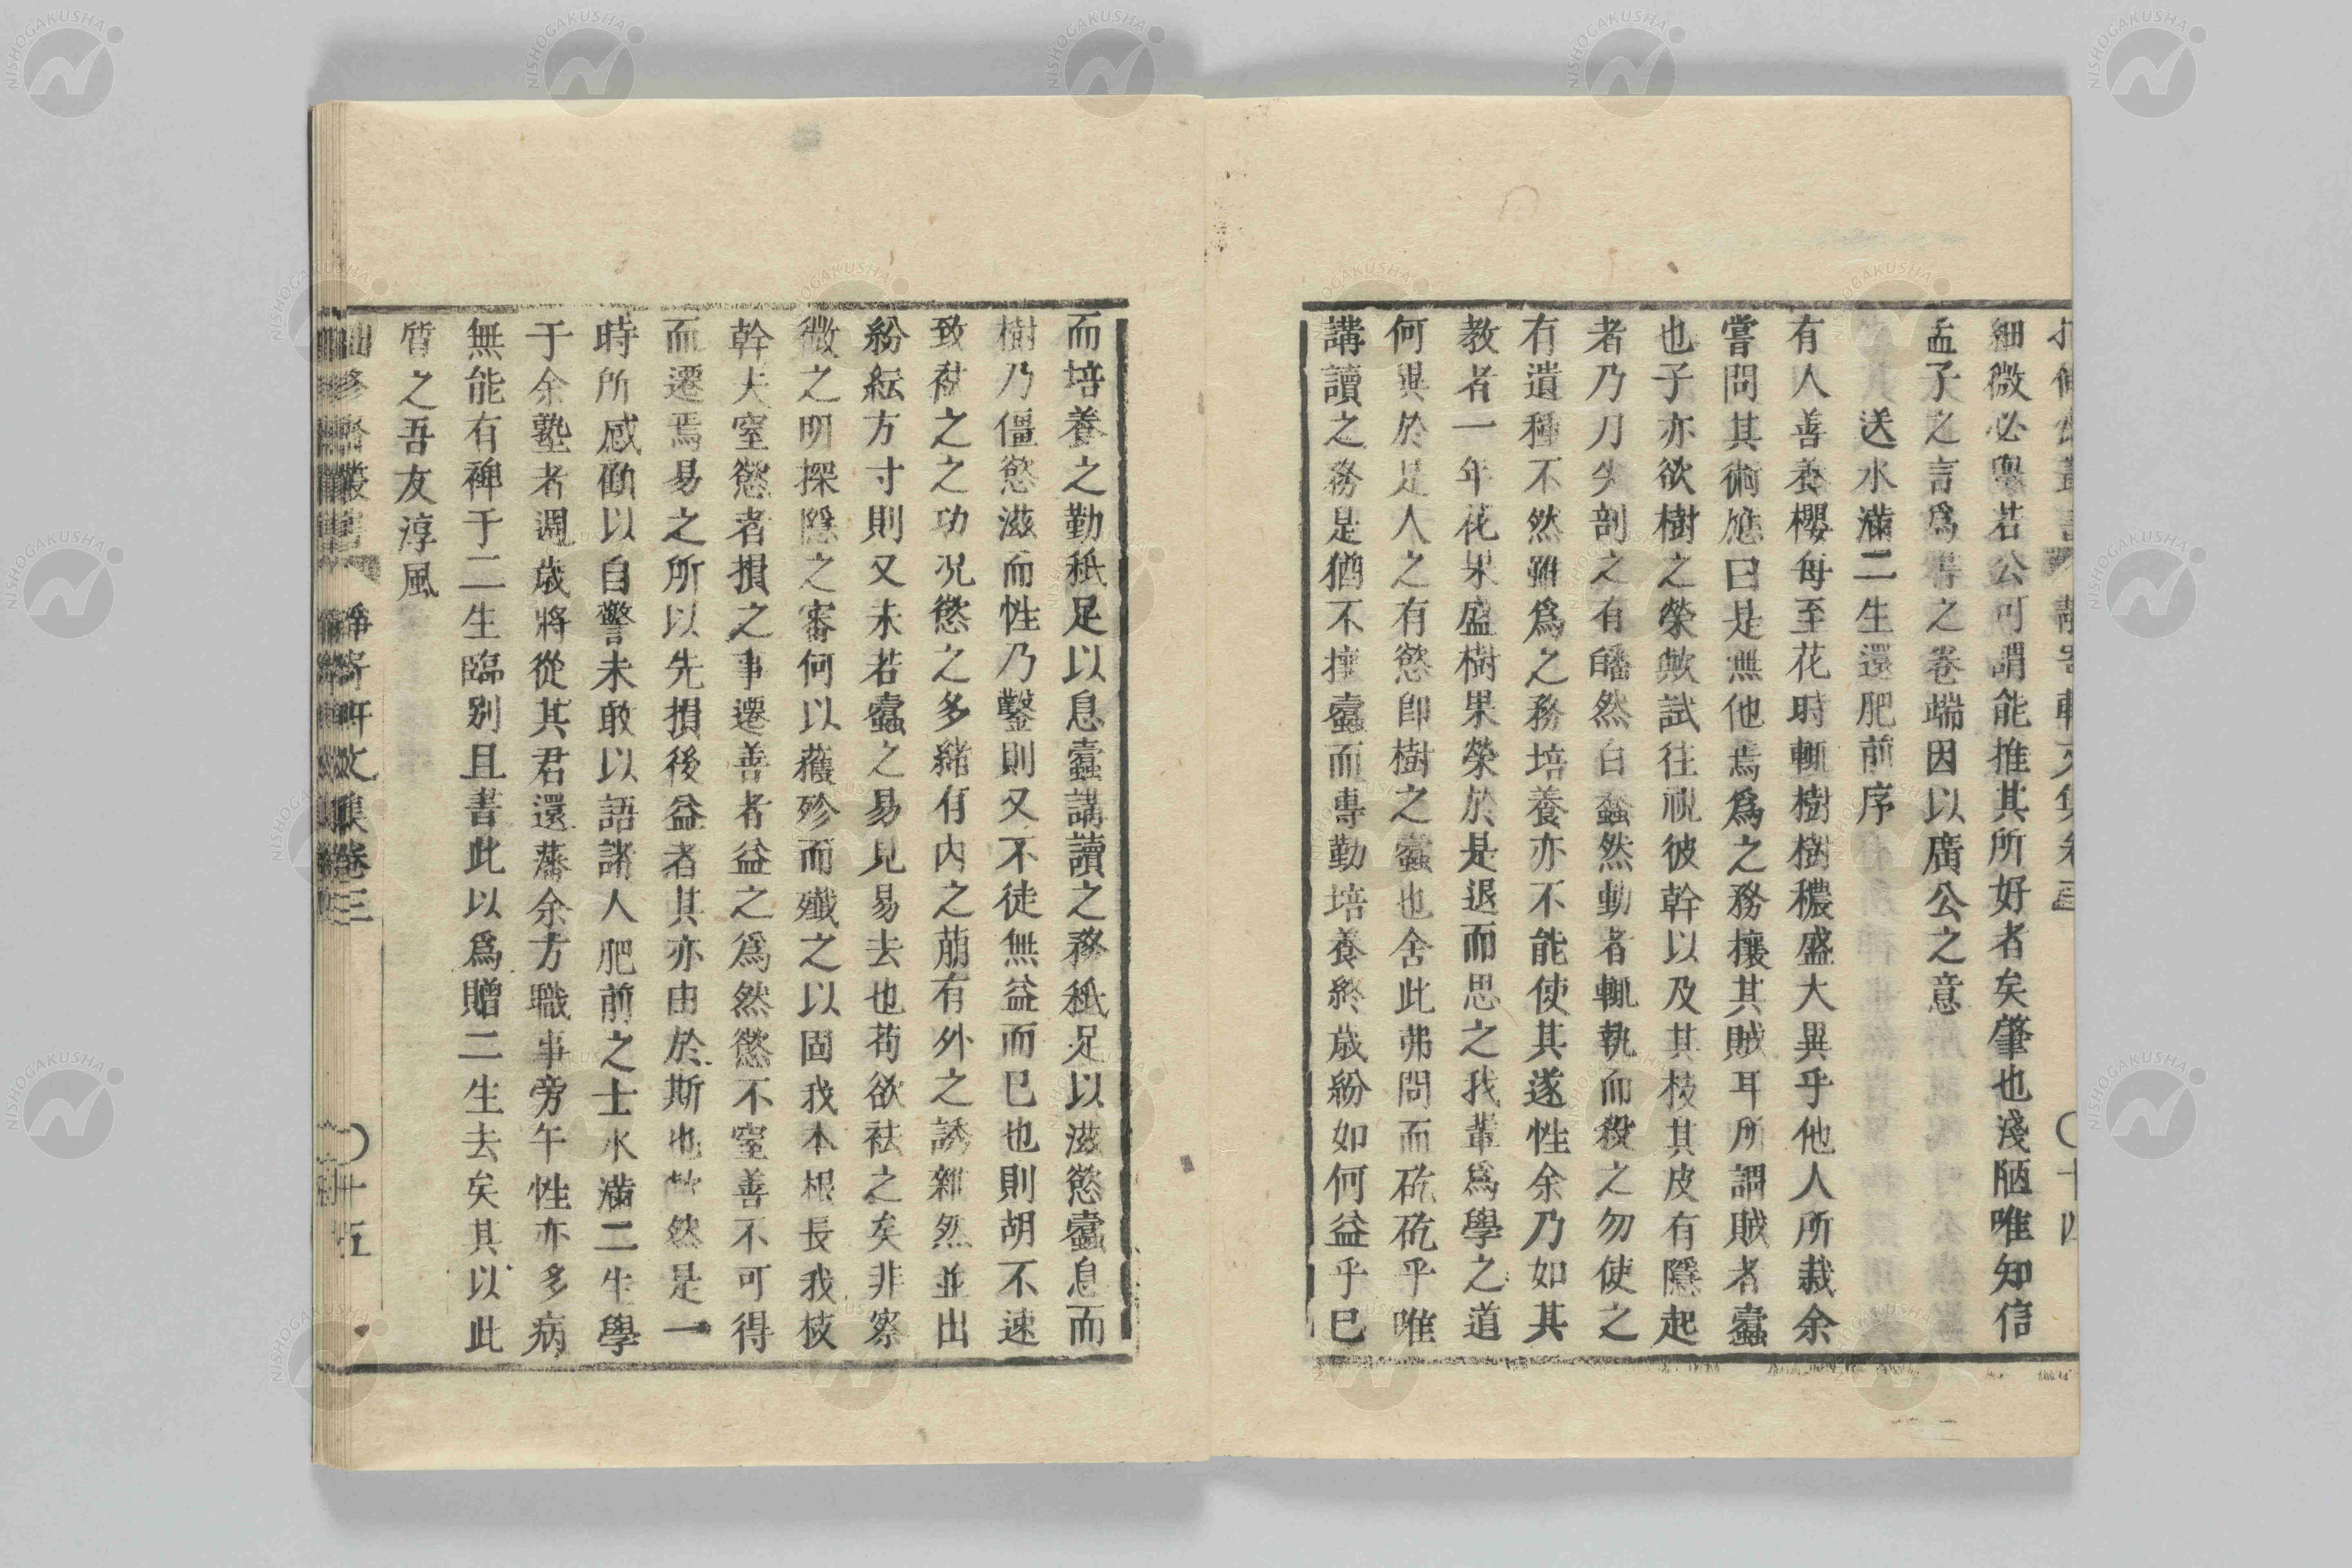 細微必學若公可謂能推其所好者矣肇也淺陋唯知信
孟子之言爲書之卷端因以廣公之意
送水滿二生還肥前序
有人善養櫻每至花時輙樹樹穠盛大異乎他人所栽余
嘗問其術應曰是無他焉爲之務攘其賊耳所謂賊者蠧
也子亦欲樹之榮歟試往視彼幹以及其枝其皮有隱起
者乃刀尖剖之有皤然白蝨然動者輙執而殺之勿使之
有遺種不然雖爲之務培養亦不能使其遂性余乃如其
教者一年花果盛樹果榮於是退而思之我輩爲學之道
何異於是人之有慾卽樹之蠧也舍此弗問而矻矻乎唯
講讀之務是猶不攘蠧而專勤培養終歲紛如何益乎已
而培養之勤秖足以息蠧講讀之務秖足以滋慾蠧息而
樹乃僵慾滋而性乃鑿則又不徒無益而已也則胡不速
致祛之之功况慾之多緒有内之萠有外之誘雜然並出
紛紜方寸則又未若蠧之易見易去也苟欲祛之矣非察
微之明探隱之審何以獲殄而殲之以固我本根長我枝
幹夫窒慾者損之事遷善者益之爲然慾不窒善不可得
而遷焉易之所以先損後益者其亦由於斯也歟然是一
時所感勵以自警未敢以語諸人肥前之士水滿二生學
于余塾者週歲將從其君還藩余方職事旁午性亦多病
無能有裨于二生臨别且書此以爲贈二生去矣其以此
質之吾友淳風
卷三
十五
NISHOGAKUSHA